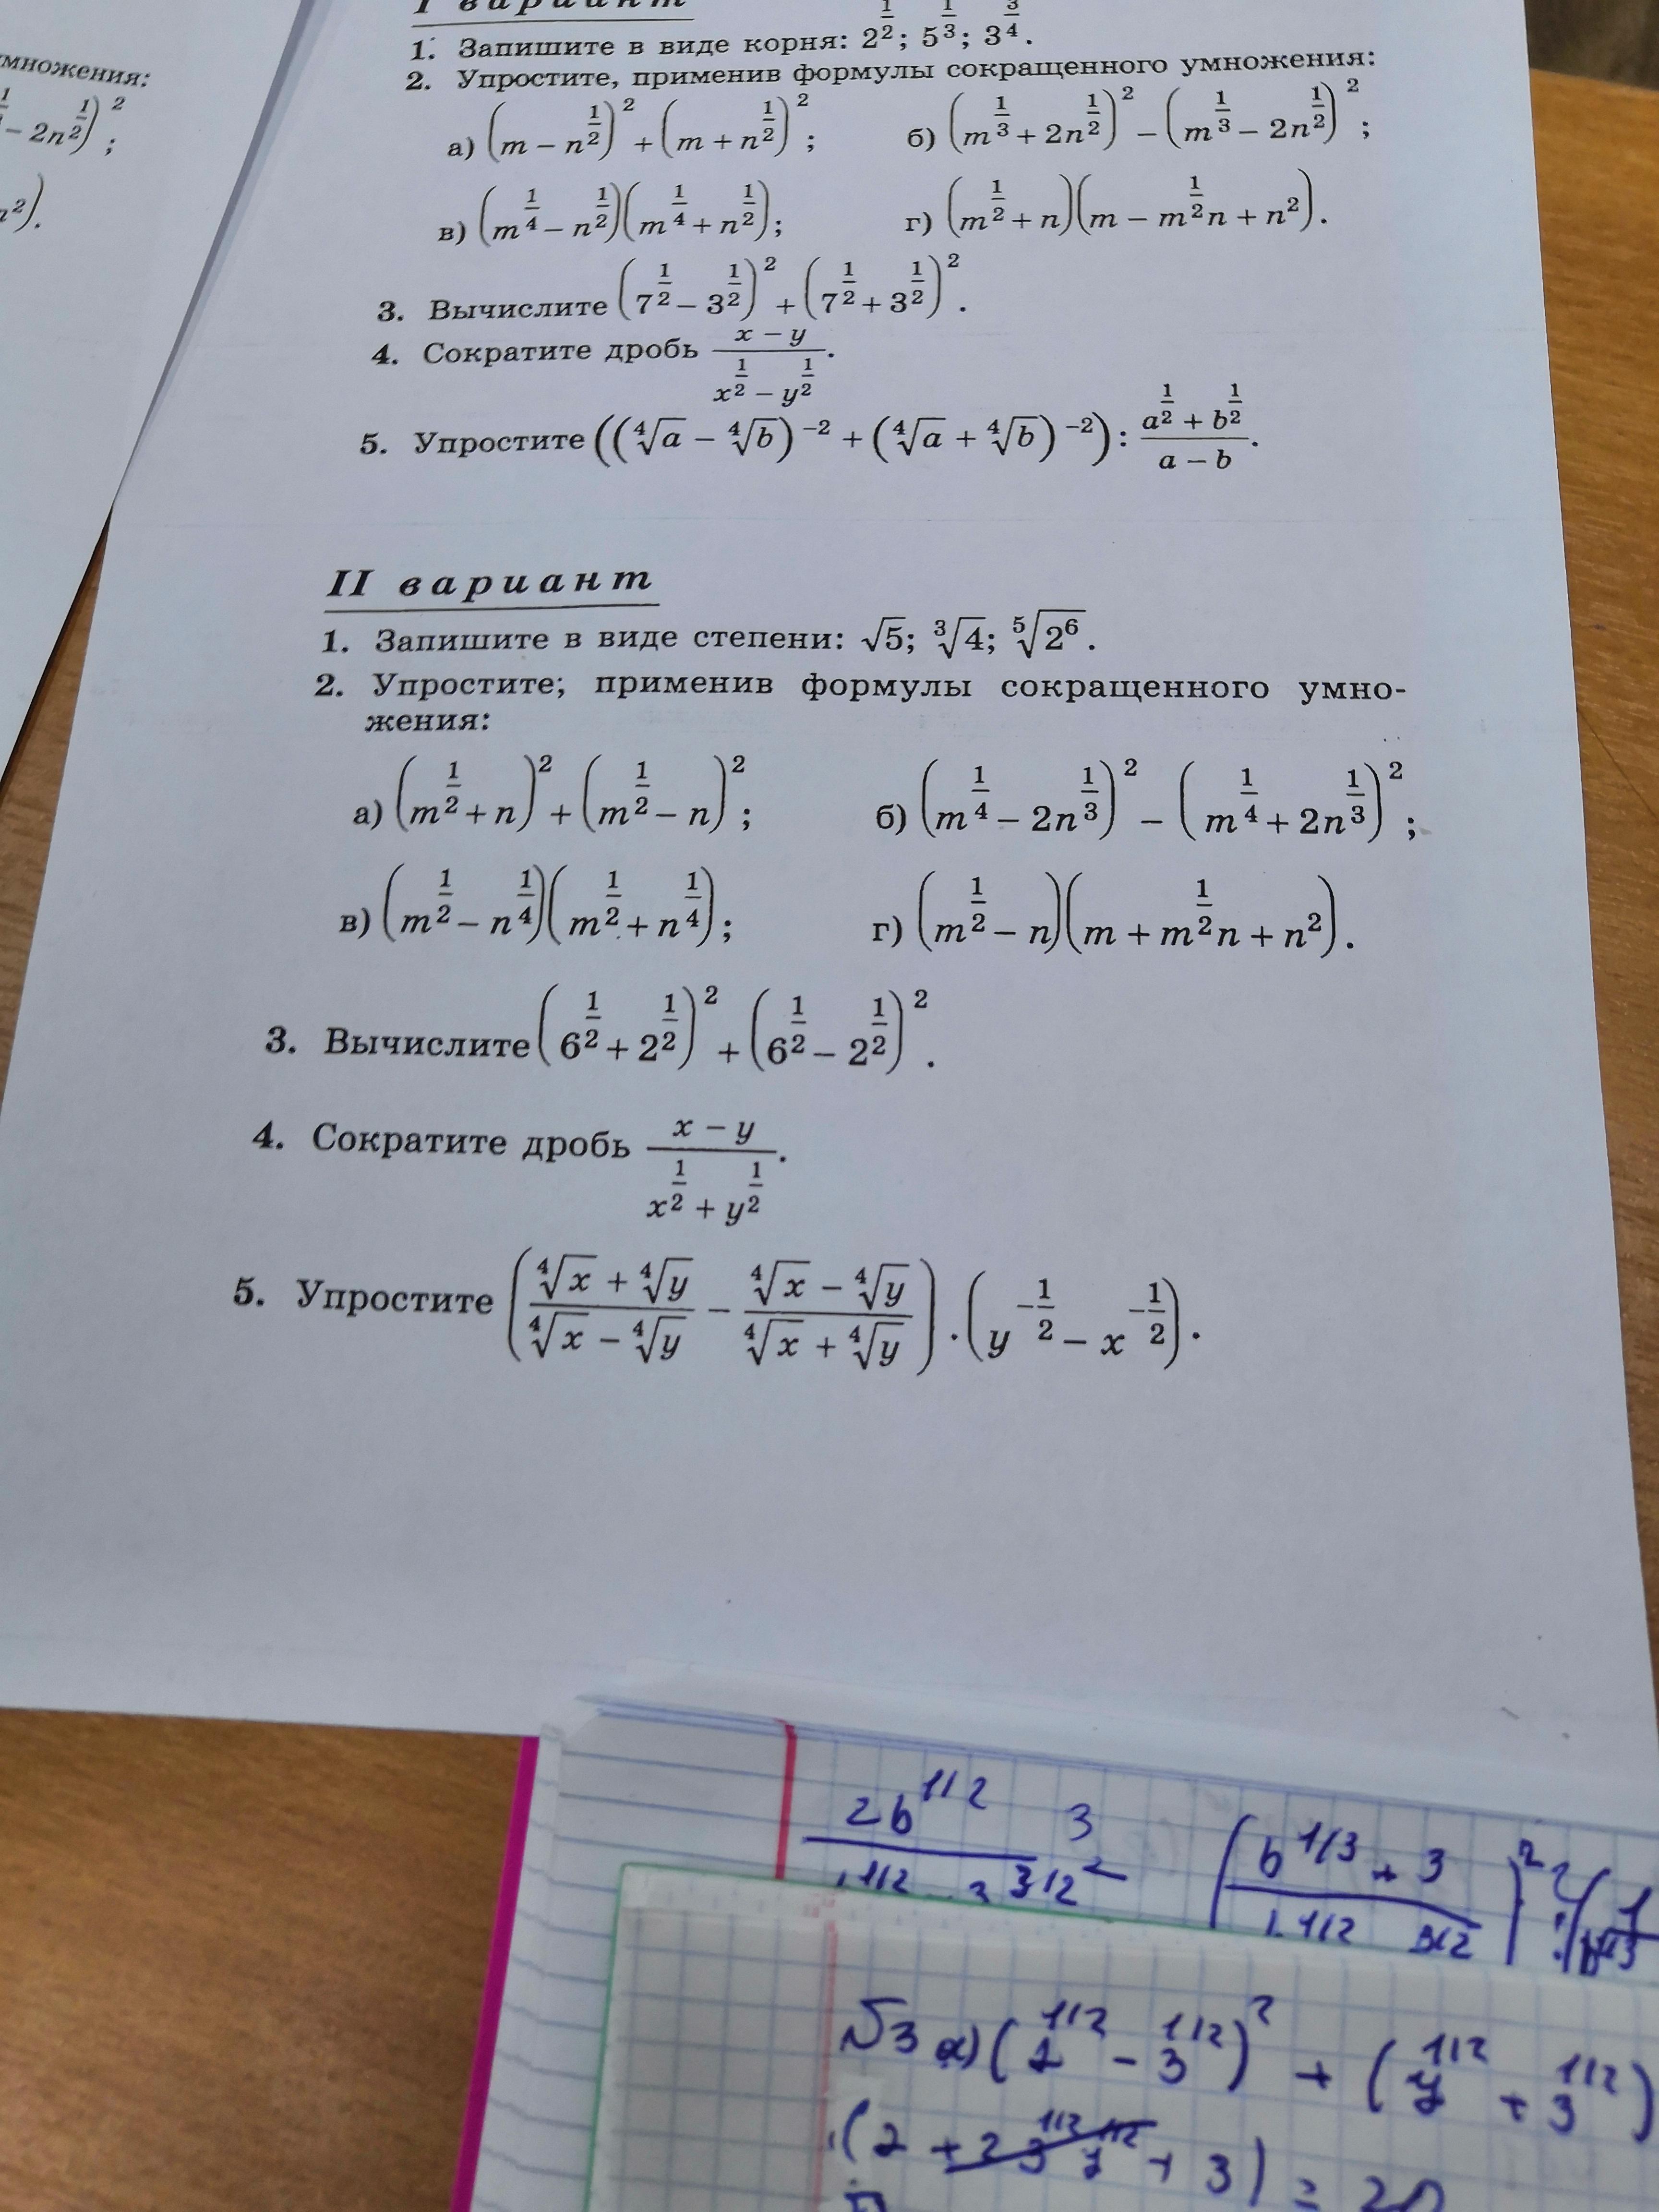 множения:
− 2n^(1/2))^2;
n^2).
I вариант
1. Запишите в виде корня: 2^(1/2); 5^(1/3); 3^(3/4).
2. Упростите, применив формулы сокращенного умножения:
а) (m − n^(1/2))^2 + (m + n^(1/2))^2; б) (m^(1/3) + 2n^(1/2))^2 − (m^(1/3) − 2n^(1/2))^2;
в) (m^(1/4) − n^(1/2))(m^(1/4) + n^(1/2)); г) (m^(1/2) + n)(m − m^(1/2)n + n^2).
3. Вычислите (7^(1/2) − 3^(1/2))^2 + (7^(1/2) + 3^(1/2))^2.
4. Сократите дробь (x − y)/(x^(1/2) − y^(1/2)).
5. Упростите ((∜a − ∜b)^(−2) + (∜a + ∜b)^(−2)) : (a^(1/2) + b^(1/2))/(a − b).
II вариант
1. Запишите в виде степени: √5; ∛4; ⁵√(2^6).
2. Упростите; применив формулы сокращенного умно-
жения:
а) (m^(1/2) + n)^2 + (m^(1/2) − n)^2; б) (m^(1/4) − 2n^(1/3))^2 − (m^(1/4) + 2n^(1/3))^2;
в) (m^(1/2) − n^(1/4))(m^(1/2) + n^(1/4)); г) (m^(1/2) − n)(m + m^(1/2)n + n^2).
3. Вычислите (6^(1/2) + 2^(1/2))^2 + (6^(1/2) − 2^(1/2))^2.
4. Сократите дробь (x − y)/(x^(1/2) + y^(1/2)).
5. Упростите ((∜x + ∜y)/(∜x − ∜y) − (∜x − ∜y)/(∜x + ∜y)) · (y^(−1/2) − x^(−1/2)).
2b^1/2 3
b^1/3 + 3
№3 а) (2^1/2 − 3^1/2)^2 + (7^1/2 + 3^1/2)
+ 3) = 20